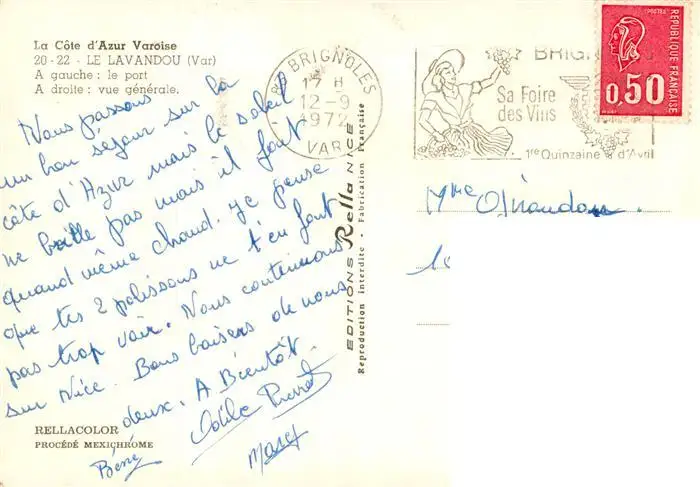 La Côte d'Azur Varoise
20-22 - LE LAVANDOU (Var)
A gauche : le port
A droite : vue générale.
Nous passons
un bon séjour sur la
côte d'Azur mais le soleil
ne brille pas mais il fait
quand même chaud. Je pense
que tes 2 polissons ne t'en font
pas trop voir. Nous continuons
sur Nice. Bons baisers de nous
deux. A Bientôt.
Odile
RELLACOLOR
PROCÉDÉ MEXICHROME
EDITIONS Rella NICE
Reproduction interdite - Fabrication Française
BRIGNOLES
17 H
12-9
1972
VAR
BRIGN
Sa Foire
des Vins
1re Quinzaine d'Avril
POSTES
REPUBLIQUE FRANÇAISE
0,50
Mme